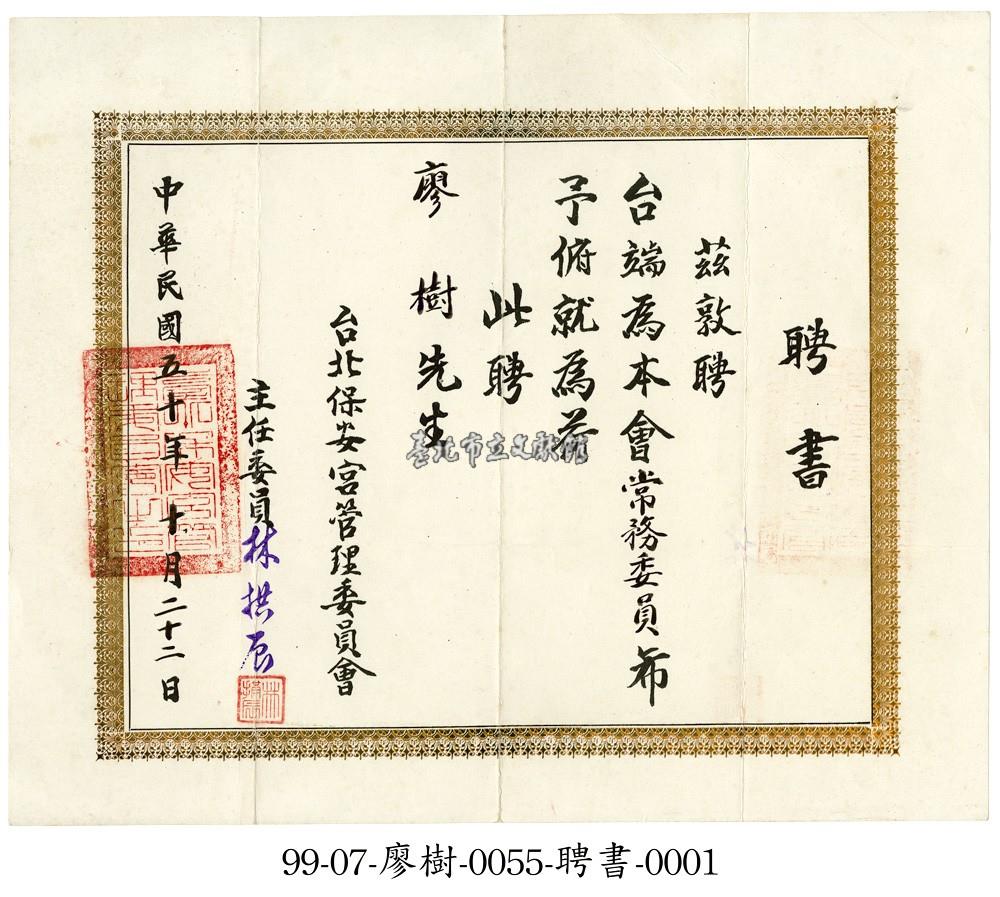 聘書
茲敦聘
台端為本會常務委員希
予俯就為荷
此聘
廖樹先生
台北保安宮管理委員會
主任委員林拱辰
中華民國五十年十月二十二日
臺北市立文獻館
99-07-廖樹-0055-聘書-0001